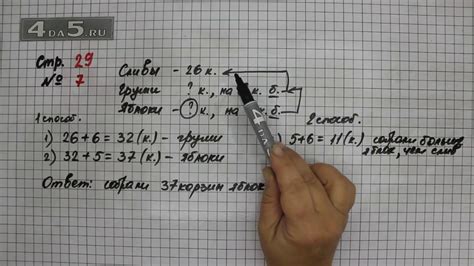 4DA5.RU
Стр. 29
№ 7
Сливы - 26 к.
Груши ? к., на к. б.
Яблоки - ? к., на к. б.
1 способ.
1) 26 + 6 = 32 (к.) - груши
2) 32 + 5 = 37 (к.) - яблоки
2 способ.
) 5 + 6 = 11 (к.) собрали больше
яблок, чем слив
Ответ: собрали 37 корзин яблок
4DA5